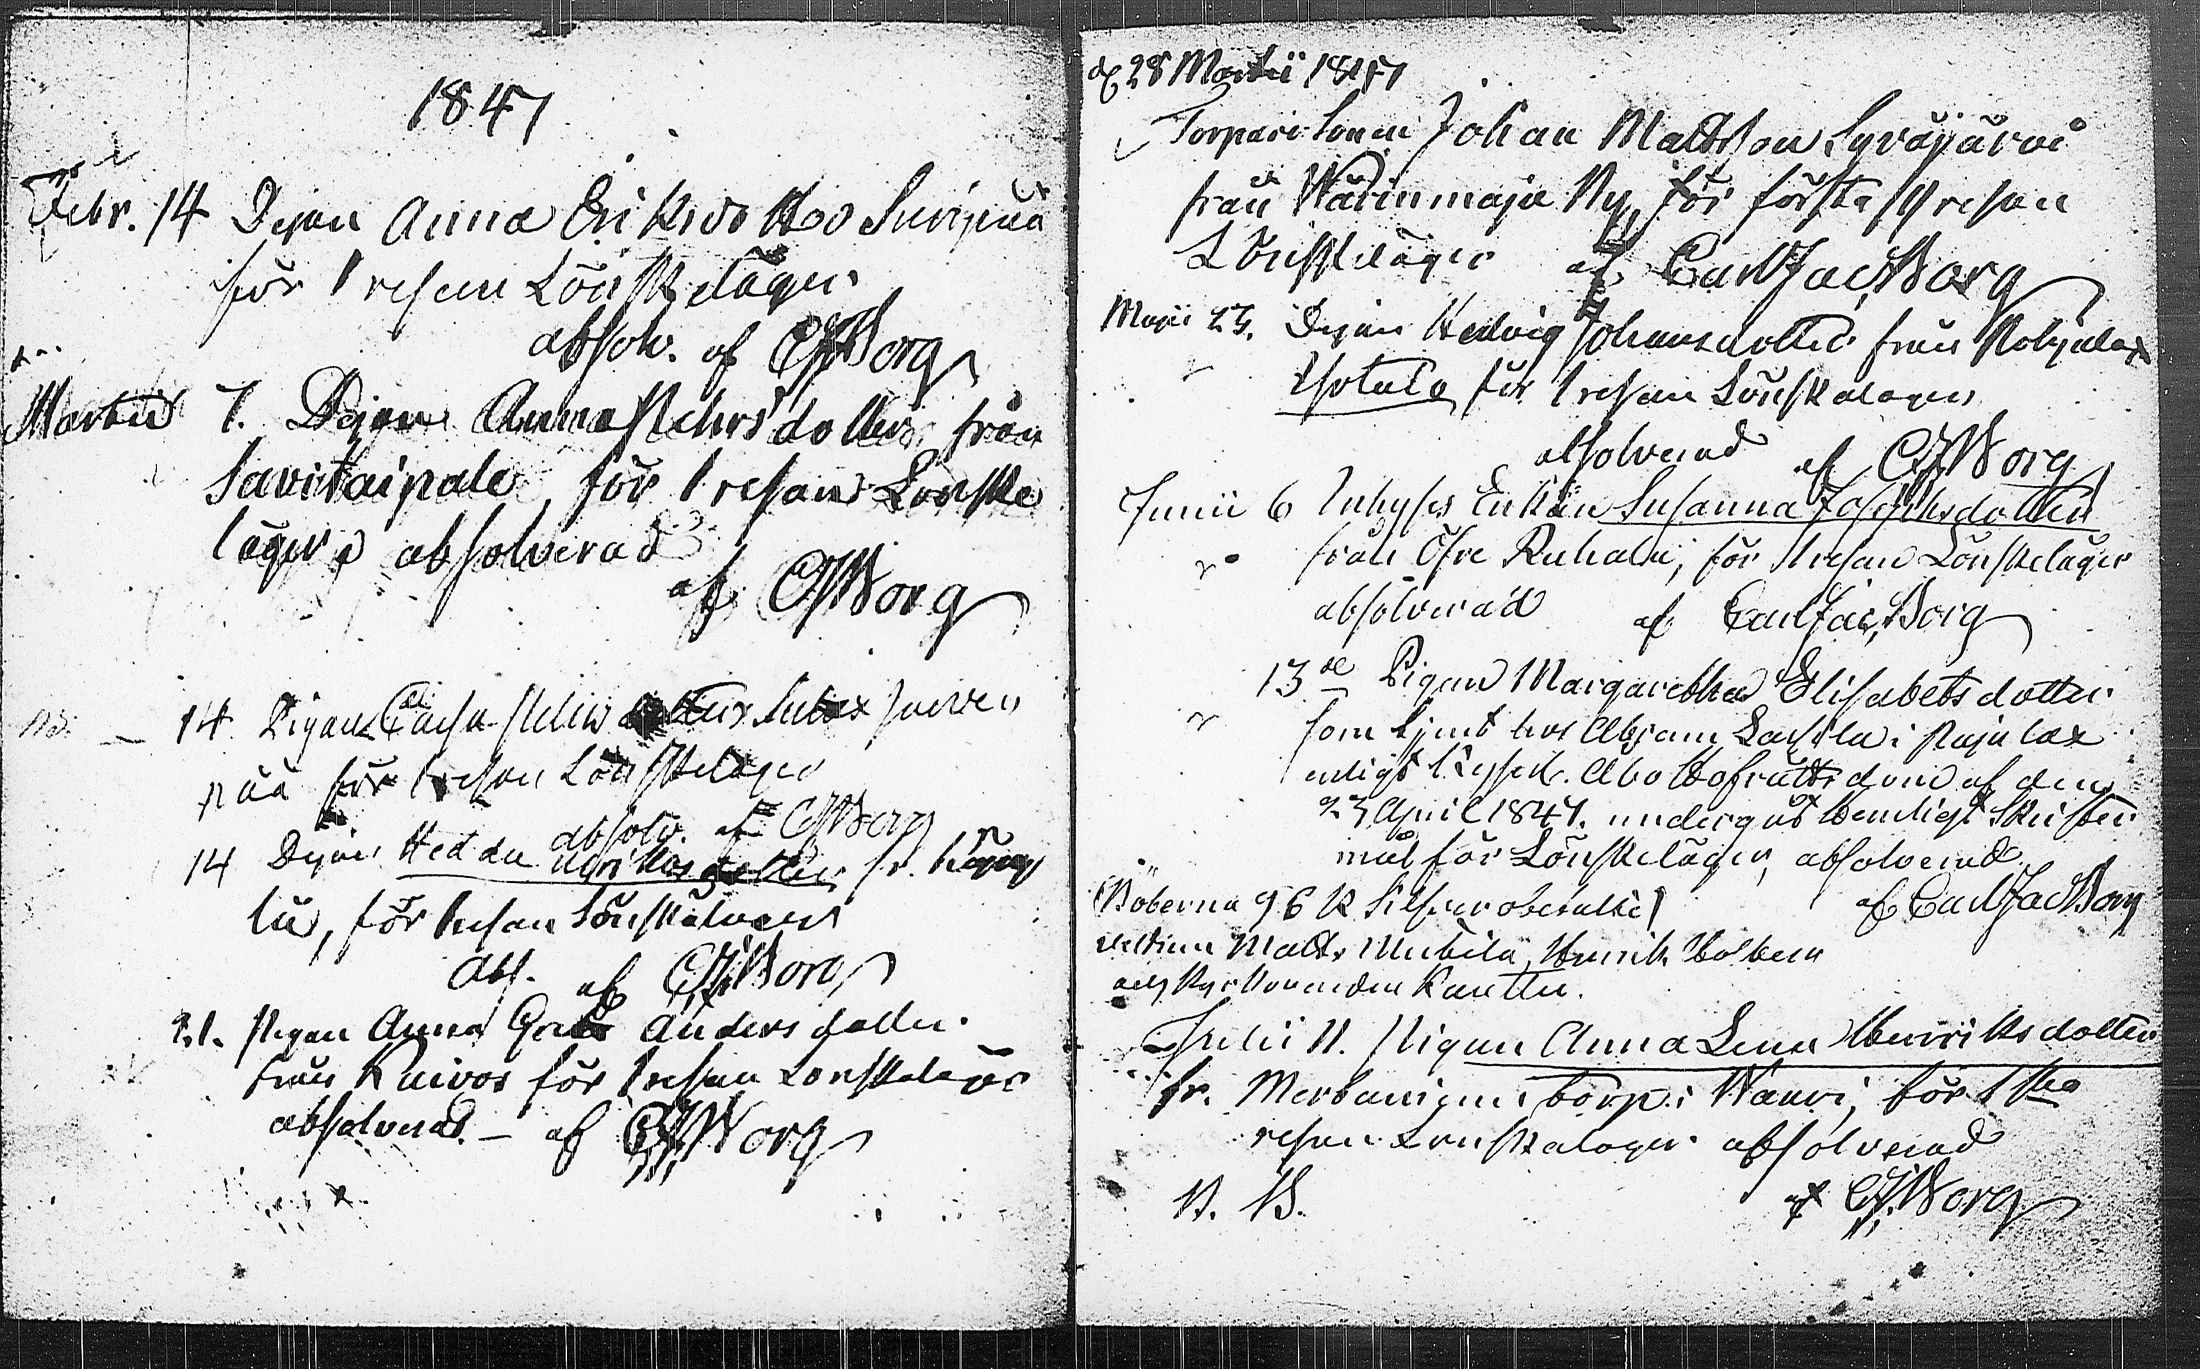 1847
Febr. 14 Pigan Anna Eriksdotter Suvipää
för 1 resan Lönskeläger
absolv. af CJBorg
Martii 7. Pigan Anna Pehrsdotter från
Savitaipale, för 1 resans Lönske
läger, absolverad
af CJBorg
14 Pigan Caisa
pää för 1 resan Lönskeläger
absolv. af CJBorg
14 Pigan Hedda Henriks dotter fr.
la, för 1 resan Lönskeläger
Abs. af CJBorg
21. Pigan Anna Greta Anders dotter
från Kuivos för 1 resan Lönskeläger
absolverad. — af CJBorg
d 28 Martii 1847
Torpare Sonen Johan Mattsson Syväjärvi
från Wärinmaja By, för första resan
Lönskeläger af Carl Jac. Borg
Maji 23. Pigan Hedvig Johansdotter från Pohjalax
för 1 resan Lönskaläger
absolverad af CJBorg
Junii 6 Inhyses Enkan Susanna Josephsdotter
från Öfre Ruhala, för 1 resan Lönskeläger
absolverad af Carl Jac. Borg
13de Pigan Margaretha Elisabets dotter
som tjent hos Abram i Pajulax
enligt Kejserl. Åbo Hofrätts dom af den
23 April 1847. undergått hemligt Skrifter
mål för Lönskeläger, absolverad
Böterna 9 6 k Silfver obetalte af Carl Jac Borg
vittnen Matts Henrik
och Kyrkovärden Kantti.
Julii 11. Pigan Anna Lena Henriks dotter
fr. torp i Wauri, för 1sta
resan Lönskaläger absolverad
N. B. af CJBorg